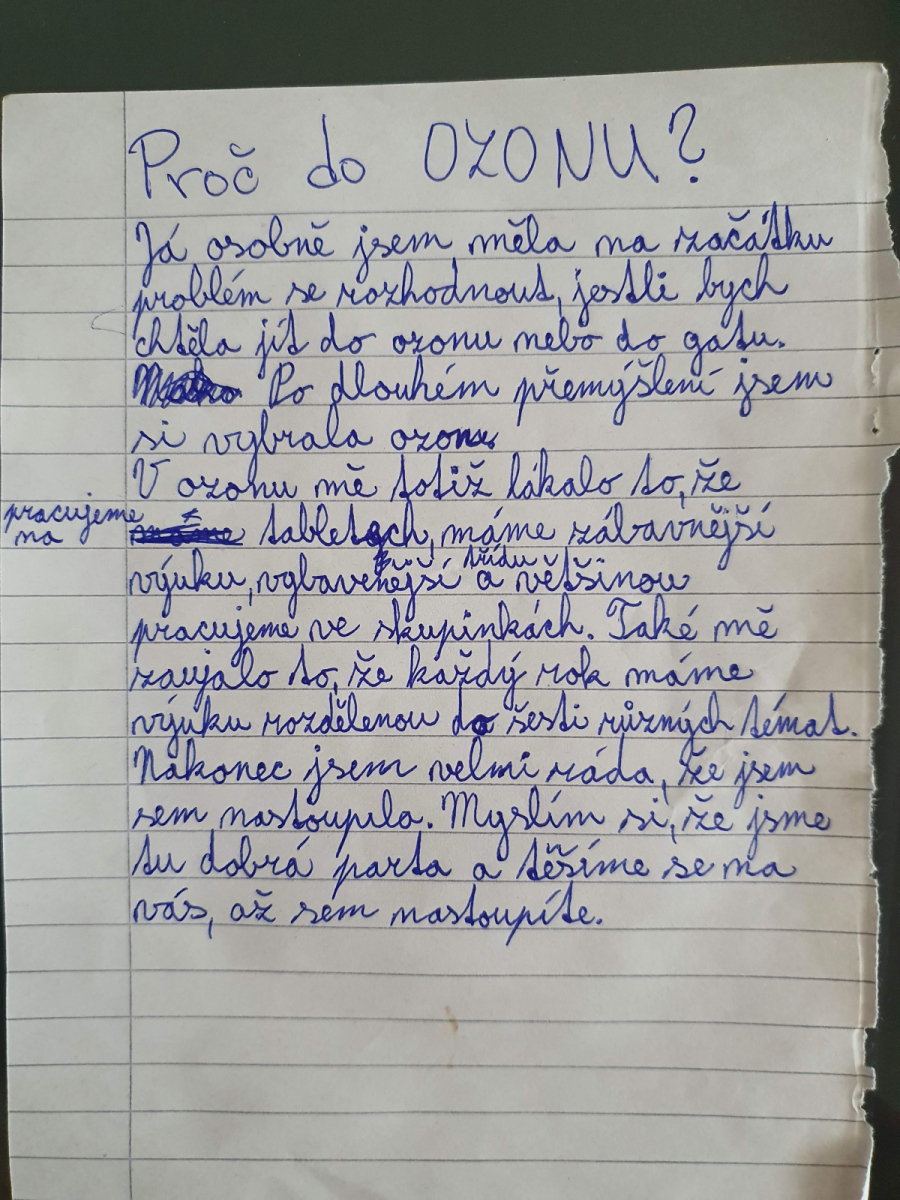 Proč do OZONU?
Já osobně jsem měla na začátku
problém se rozhodnout, jestli bych
chtěla jít do ozonu nebo do gatu.
Po dlouhém přemýšlení jsem
si vybrala ozon.
V ozonu mě totiž lákalo to, že
pracujeme
na
tabletech, máme zábavnější
třídu
výuku, vybavenější a většinou
pracujeme ve skupinkách. Také mě
zaujalo to, že každý rok máme
výuku rozdělenou do šesti různých témat.
Nakonec jsem velmi ráda, že jsem
sem nastoupila. Myslím si, že jsme
tu dobrá parta a těšíme se na
vás, až sem nastoupíte.